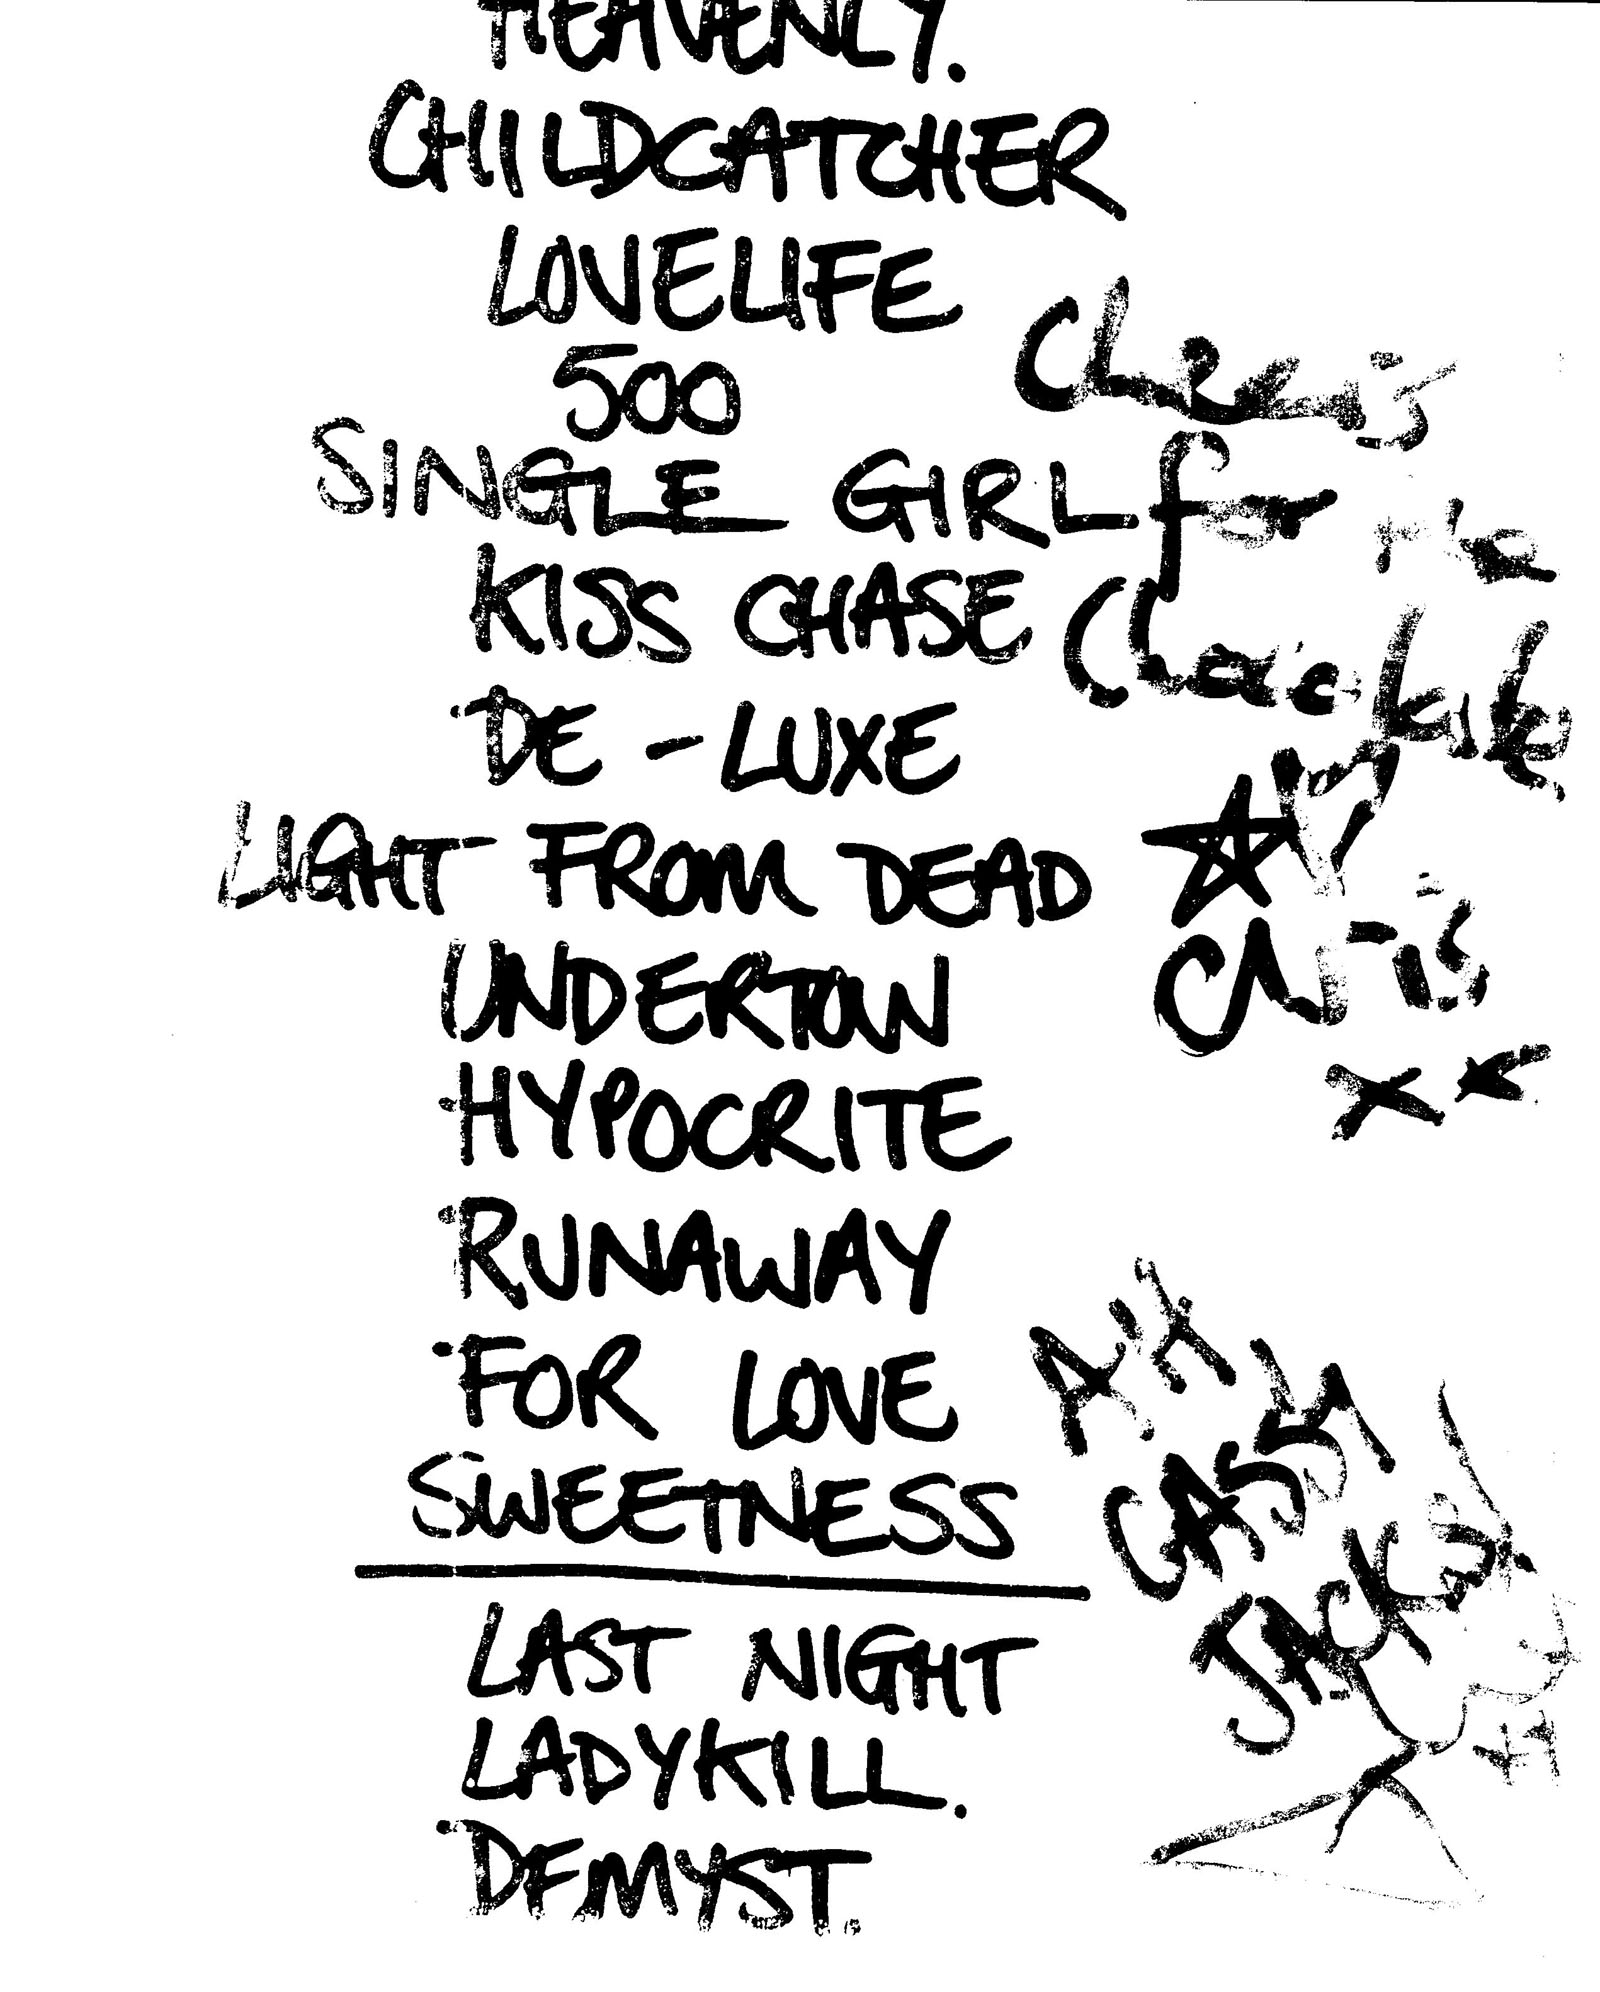 HEAVENLY.
CHILDCATCHER
LOVELIFE
500
SINGLE GIRL
KISS CHASE
DE-LUXE
LIGHT FROM DEAD
UNDERTOW
HYPOCRITE
RUNAWAY
FOR LOVE
SWEETNESS
LAST NIGHT
LADYKILL.
DEMYST.
Cheers
for the
Chocolate
Chris
xx
CASSY
JACK